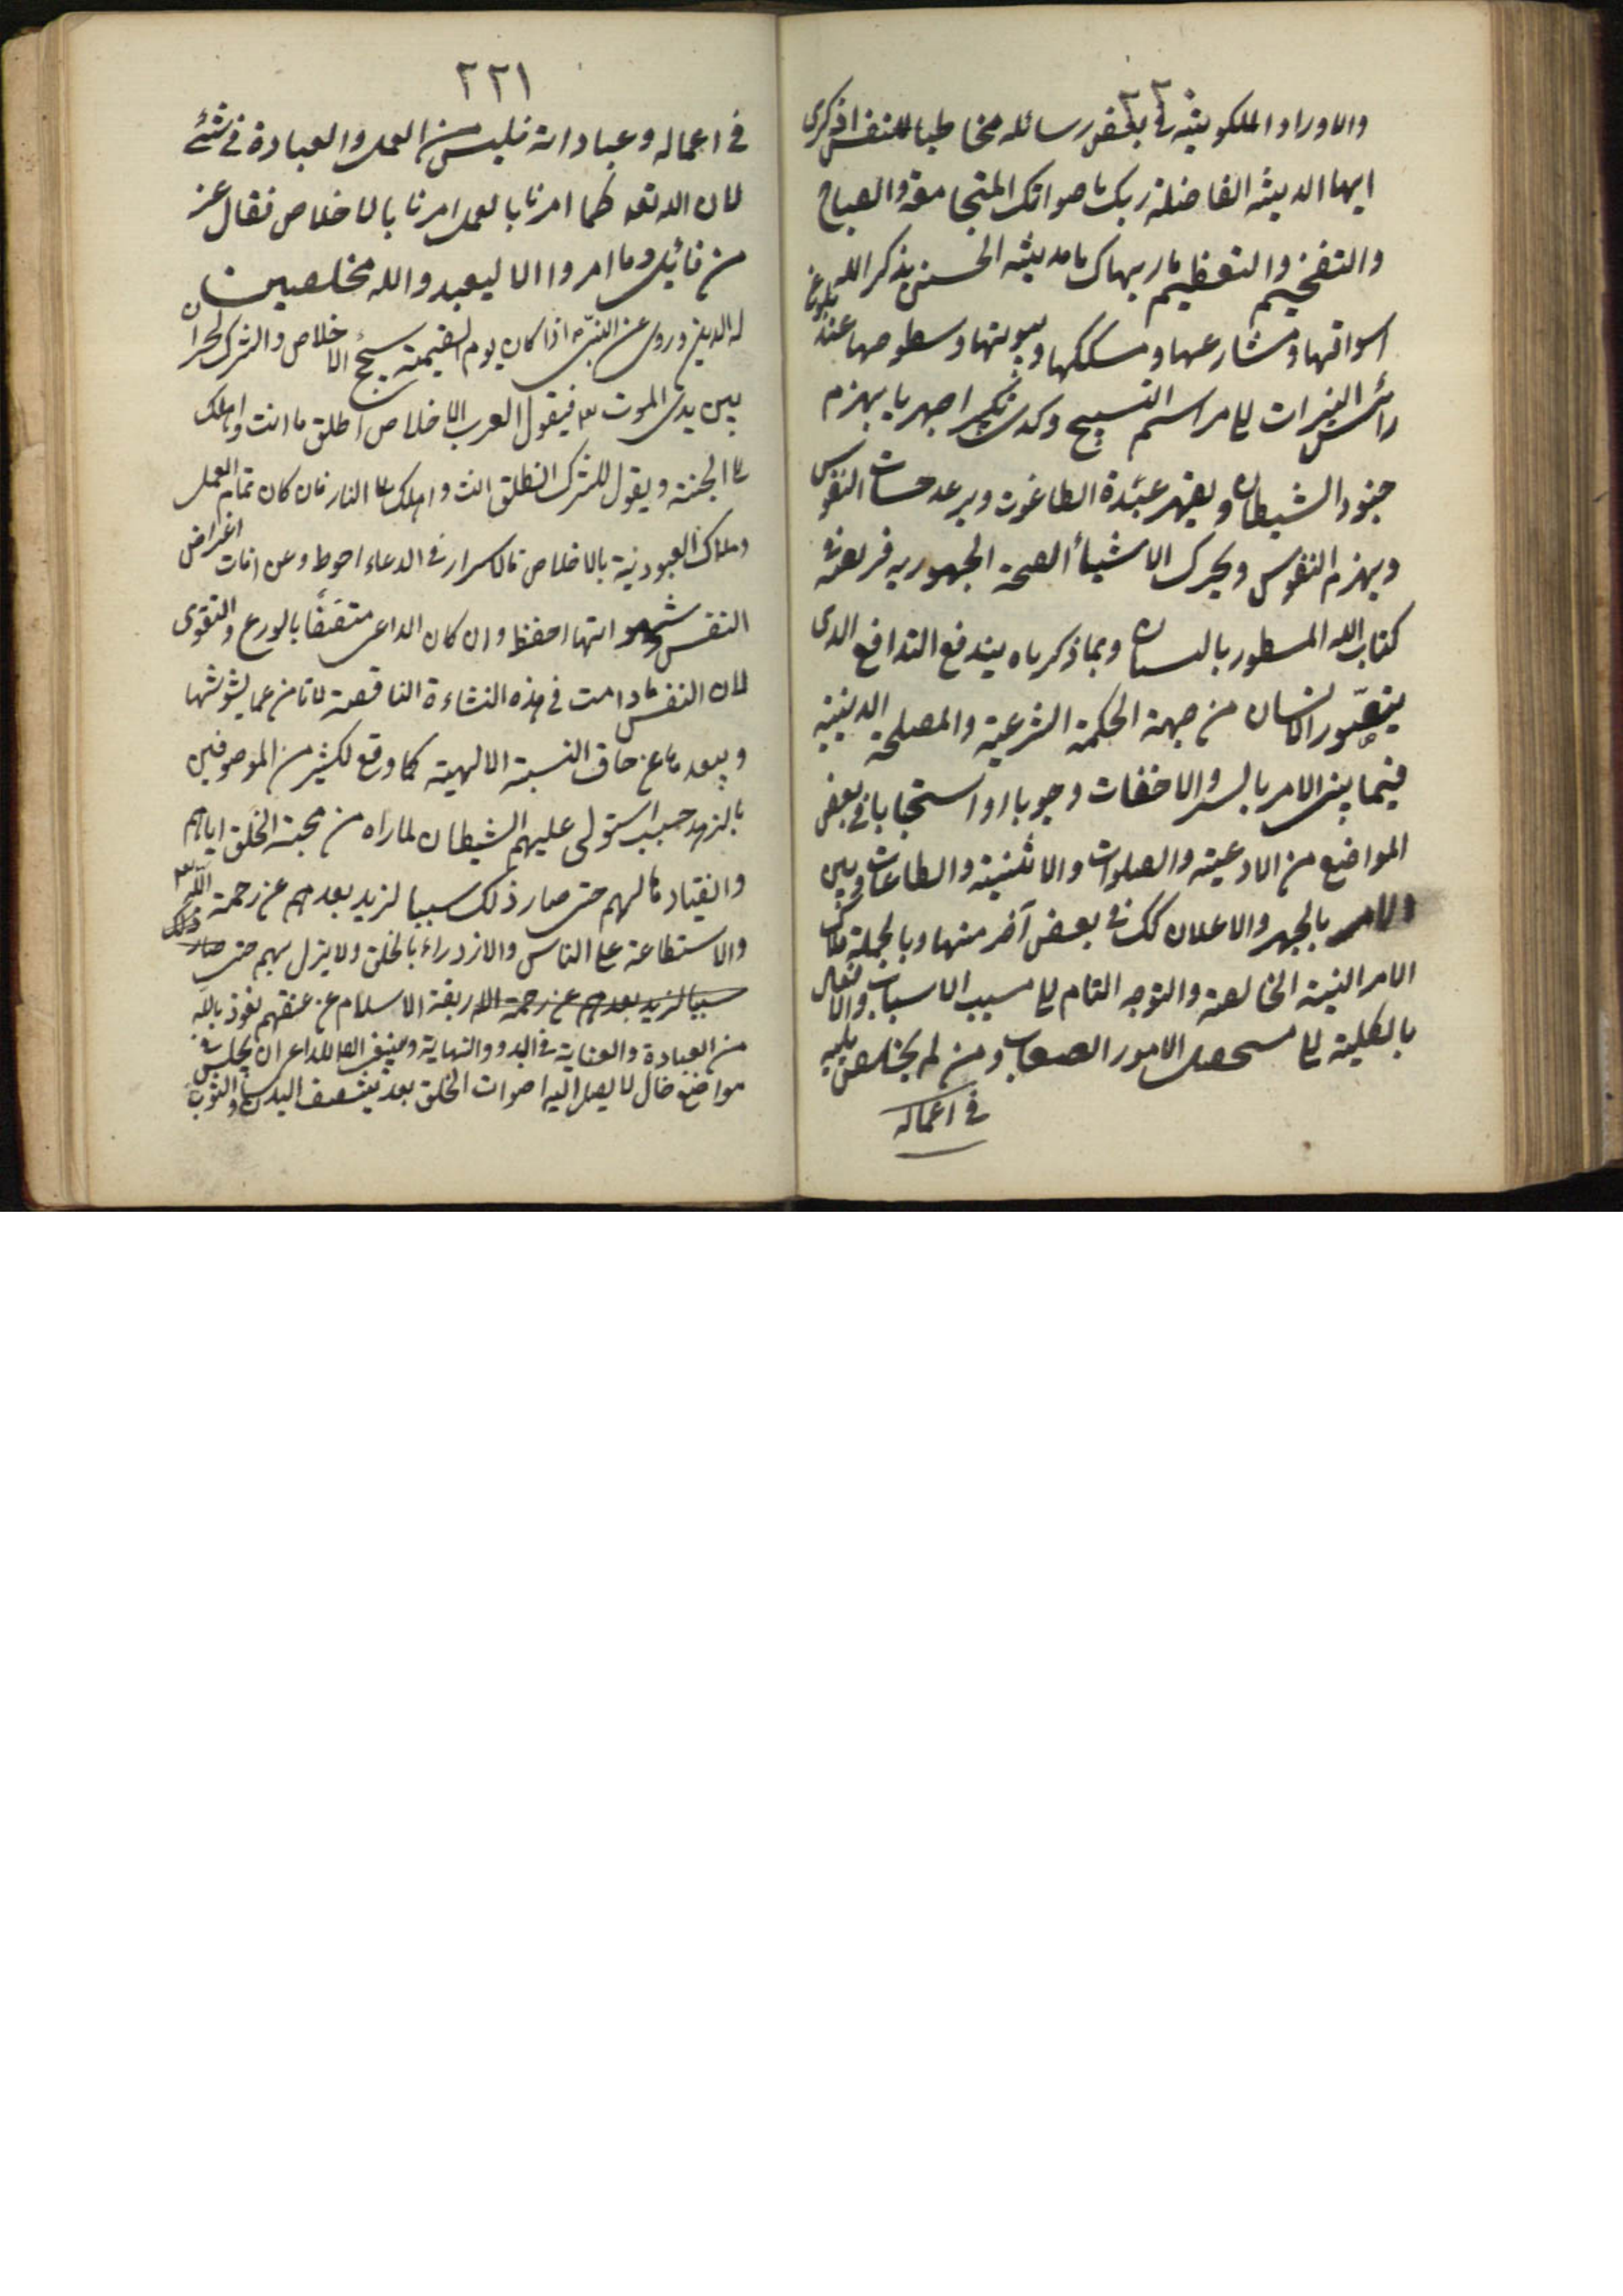 ٢٢٠
والاوراد الملكوتية في بعض رسائله مخاطبا للنفس اذكرى
ايها المدينة الفاضلة ربك باصواتك المتجامعة والصياح
والتفخيم والتعظيم ما ابهاك يا مدينة الحسنى بذكر الله بلوغا
اسواقها ومشارعها ومسككها وبيوتها وسطوحها عند
رائس النيرات الى مراسم التسبيح وكدى تكبيرا جهريا يهزم
جنود الشيطان ويقهر عبدة الطاغوت ويرعد حسات النفوس
ويهزم النفوس ويحرك الاشياء الصحة الجهورية فريضة في
كتاب الله المسطور بالسان وبما ذكرناه يندفع التدافع الذى
يتصور الانسان من جهة الحكمة الشرعية والمصلحة الدينية
فيما بين الامر بالسر والاخفات وجوبا او استحبابا في بعض
المواضع من الادعية والصلوات والاثنية والطاعات وبين
والامر بالجهر والاعلان كك في بعض آخر منها وبالجملة ملاك
الامر النية الخالصة والتوجه التام الى مسبب الاسباب والانفعال
بالكلية الى مسحصل الامور الصعاب ومن لم يخلص نيته
في اعماله
٢٢١
في اعماله وعباداته فليس من العمل والعبادة في شئ
لان الله تعه كلما امرنا بالعمل امرنا بالاخلاص فقال عز
من قائل وما امروا الا ليعبدوا الله مخلصين
له الدين وروى عن النبى ص اذا كان يوم القيمة يجئ الاخلاص والشرك يجران
بين يدى الموت فيقول الرب للاخلاص اطلق ما انت واهلك
الى الجنة ويقول للشرك انطلق انت واهلك الى النار فان كان تمام العمل
وملاك العبودية بالاخلاص فالاسرار في الدعاء احوط وعن افات اغراض
النفس وشهواتها احفظ وان كان الداعى متصفا بالورع والتقوى
لان النفس ما دامت في هذه النشاءة الناقصة لا تامن عما يشوشها
ويبعدها عن حاق النسبة الالهية كما وقع لكثير من الموصوفين
بالزهد حيث استولى عليهم الشيطان لما راه من محبة الخلق اياهم
وانقيادهم لهم حتى صار ذلك سببا لمزيد بعدهم عن رحمة الله
والاستطاعة على الناس والازدراء بالخلق ولا يزل بهم حتى صار ذلك
سببا لمزيد بعدهم عن رحمة الله ربقة الاسلام عن عنقهم نعوذ بالله
من العبادة والعناية في البدو والنهاية وينبغى للداعى ان يجلس في
مواضع خال لا يصل اليه اصوات الخلق بعد تنظيف البدن والثوب